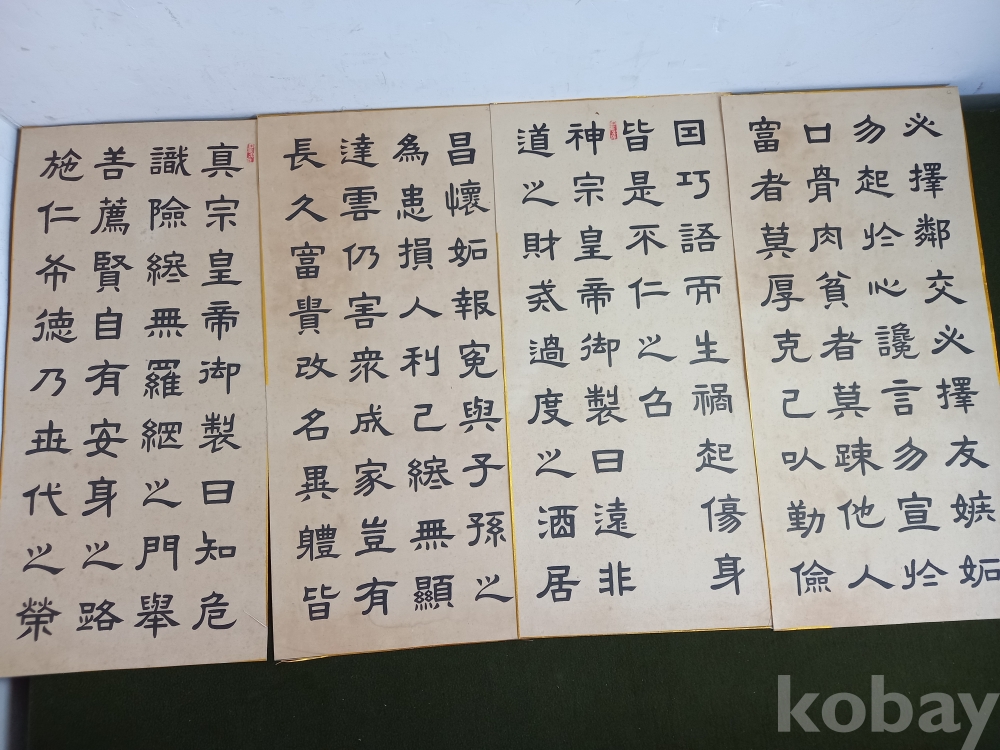 真宗皇帝御製曰知危
識險終無羅網之門舉
善薦賢自有安身之路
施仁布德乃世代之榮
昌懷妬報寃與子孫之
為患損人利己終無顯
達雲仍害衆成家豈有
長久富貴改名異體皆
因巧語而生禍起傷身
皆是不仁之召
神宗皇帝御製曰遠非
道之財戒過度之酒居
必擇鄰交必擇友嫉妬
勿起於心讒言勿宣於
口骨肉貧者莫踈他人
富者莫厚克己以勤儉
kobay